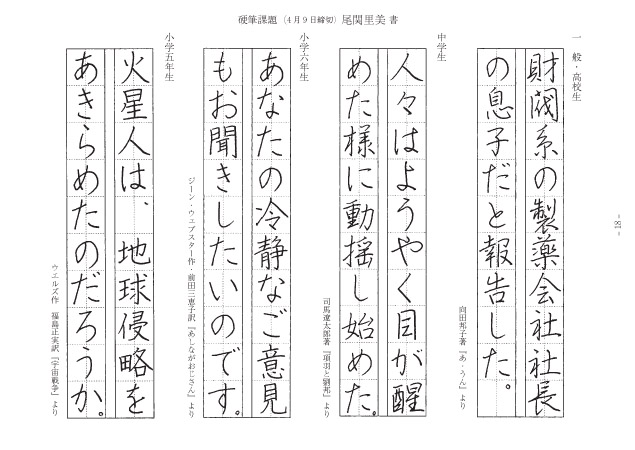 硬筆課題（4月9日締切）尾関里美 書
一般・高校生
財閥系の製薬会社社長
の息子だと報告した。
向田邦子著『あ・うん』より
中学生
人々はようやく目が醒
めた様に動揺し始めた。
司馬遼太郎著『項羽と劉邦』より
小学六年生
あなたの冷静なご意見
もお聞きしたいのです。
ジーン・ウェブスター作 前田三恵子訳『あしながおじさん』より
小学五年生
火星人は、地球侵略を
あきらめたのだろうか。
ウエルズ作 福島正実訳『宇宙戦争』より